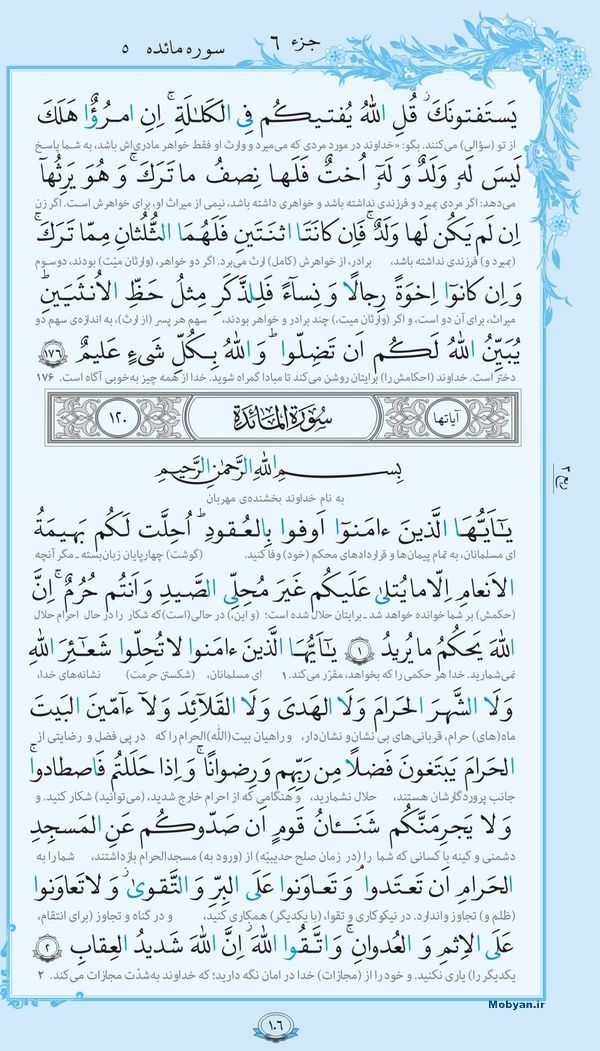 جزء ۶ سوره مائده ۵
يَستَفتونَكَ قُلِ اللهُ يُفتيكُم فِي الكَلالَةِ ۚ اِنِ امرُؤٌا هَلَكَ
از تو (سؤالی) می‌کنند. بگو: «خداوند در مورد مردی که می‌میرد و وارث او فقط خواهر مادری‌اش باشد، به شما پاسخ
لَيسَ لَهٗ وَلَدٌ وَ لَهٗٓ اُختٌ فَلَها نِصفُ ما تَرَكَ ۚ وَ هُوَ يَرِثُهآ
می‌دهد: اگر مردی بمیرد و فرزندی نداشته باشد و خواهری داشته باشد، نیمی از میراث او، برای خواهرش است. اگر زن
اِن لَم يَكُن لَها وَلَدٌ ۚ فَاِن كانَتَا اثنَتَينِ فَلَهُمَا الثُّلُثانِ مِمّا تَرَكَ ۚ
(بمیرد و) فرزندی نداشته باشد، برادر، از خواهرش (کامل) ارث می‌برد. اگر دو خواهر، (وارثان میّت) بودند، دوسوم
وَ اِن كانوٓا اِخوَةً رِجالًا وَ نِسآءً فَلِلذَّكَرِ مِثلُ حَظِّ الاُنثَيَينِ ۗ
میراث، برای آن دو است، و اگر (وارثان میت)، چند برادر و خواهر بودند، سهم هر پسر (از ارث)، به اندازه‌ی سهم دو
يُبَيِّنُ اللهُ لَكُم اَن تَضِلّوا ۗ وَ اللهُ بِكُلِّ شَيءٍ عَليمٌ ۱۷۶
دختر است. خداوند (احکامش را) برایتان روشن می‌کند تا مبادا گمراه شوید. خدا از همه چیز به‌خوبی آگاه است. ۱۷۶
آیاتها سُورَةُ المائِدَةِ ۱۲۰
بِسمِ اللهِ الرَّحمٰنِ الرَّحيمِ
به نام خداوند بخشنده‌ی مهربان
يٰٓاَيُّهَا الَّذينَ ءامَنوٓا اَوفوا بِالعُقودِ ۚ اُحِلَّت لَكُم بَهيمَةُ
ای مسلمانان، به تمام پیمان‌ها و قراردادهای محکم (خود) وفا کنید. (گوشت) چهارپایان زبان‌بسته ـ مگر آنچه
الاَنعامِ اِلّا ما يُتلىٰ عَلَيكُم غَيرَ مُحِلِّي الصَّيدِ وَ اَنتُم حُرُمٌ ۗ اِنَّ
(حکمش) بر شما خوانده خواهد شد ـ برایتان حلال شده است؛ (و این،) در حالی (است) که شکار را در حال احرام حلال
اللهَ يَحكُمُ ما يُريدُ ۱ يٰٓاَيُّهَا الَّذينَ ءامَنوا لا تُحِلّوا شَعآئِرَ اللهِ
نمی‌شمارید. خدا هر حکمی را که بخواهد، مقرّر می‌کند. ۱ ای مسلمانان، (شکستن حرمت) نشانه‌های خدا،
وَ لَا الشَّهرَ الحَرامَ وَ لَا الهَديَ وَ لَا القَلآئِدَ وَ لآ ءآمّينَ البَيتَ
ماه(های) حرام، قربانی‌های بی نشان و نشان‌دار، و راهیان بیت(الله)الحرام را که در پی فضل و رضایتی از
الحَرامَ يَبتَغونَ فَضلًا مِن رَبِّهِم وَ رِضوانًا ۚ وَ اِذا حَلَلتُم فَاصطادوا ۚ
جانب پروردگارشان هستند، حلال نشمارید، و هنگامی که از احرام خارج شدید، (می‌توانید) شکار کنید. و
وَ لا يَجرِمَنَّكُم شَنَـٔانُ قَومٍ اَن صَدّوكُم عَنِ المَسجِدِ
دشمنی و کینه با کسانی که شما را (در زمان صلح حدیبیّه) از (ورود به) مسجدالحرام بازداشتند، شما را به
الحَرامِ اَن تَعتَدوا ۘ وَ تَعاوَنوا عَلَى البِرِّ وَ التَّقوىٰ ۖ وَ لا تَعاوَنوا
(ظلم و) تجاوز واندارد. در نیکوکاری و تقوا، (با یکدیگر) همکاری کنید، و در گناه و تجاوز (برای انتقام،
عَلَى الاِثمِ وَ العُدوانِ ۚ وَ اتَّقُوا اللهَ ۖ اِنَّ اللهَ شَديدُ العِقابِ ۲
یکدیگر را) یاری نکنید. و خود را از (مجازات) خدا در امان نگه دارید؛ که خداوند به‌شدّت مجازات می‌کند. ۲
Mobyan.ir
۱۰۶